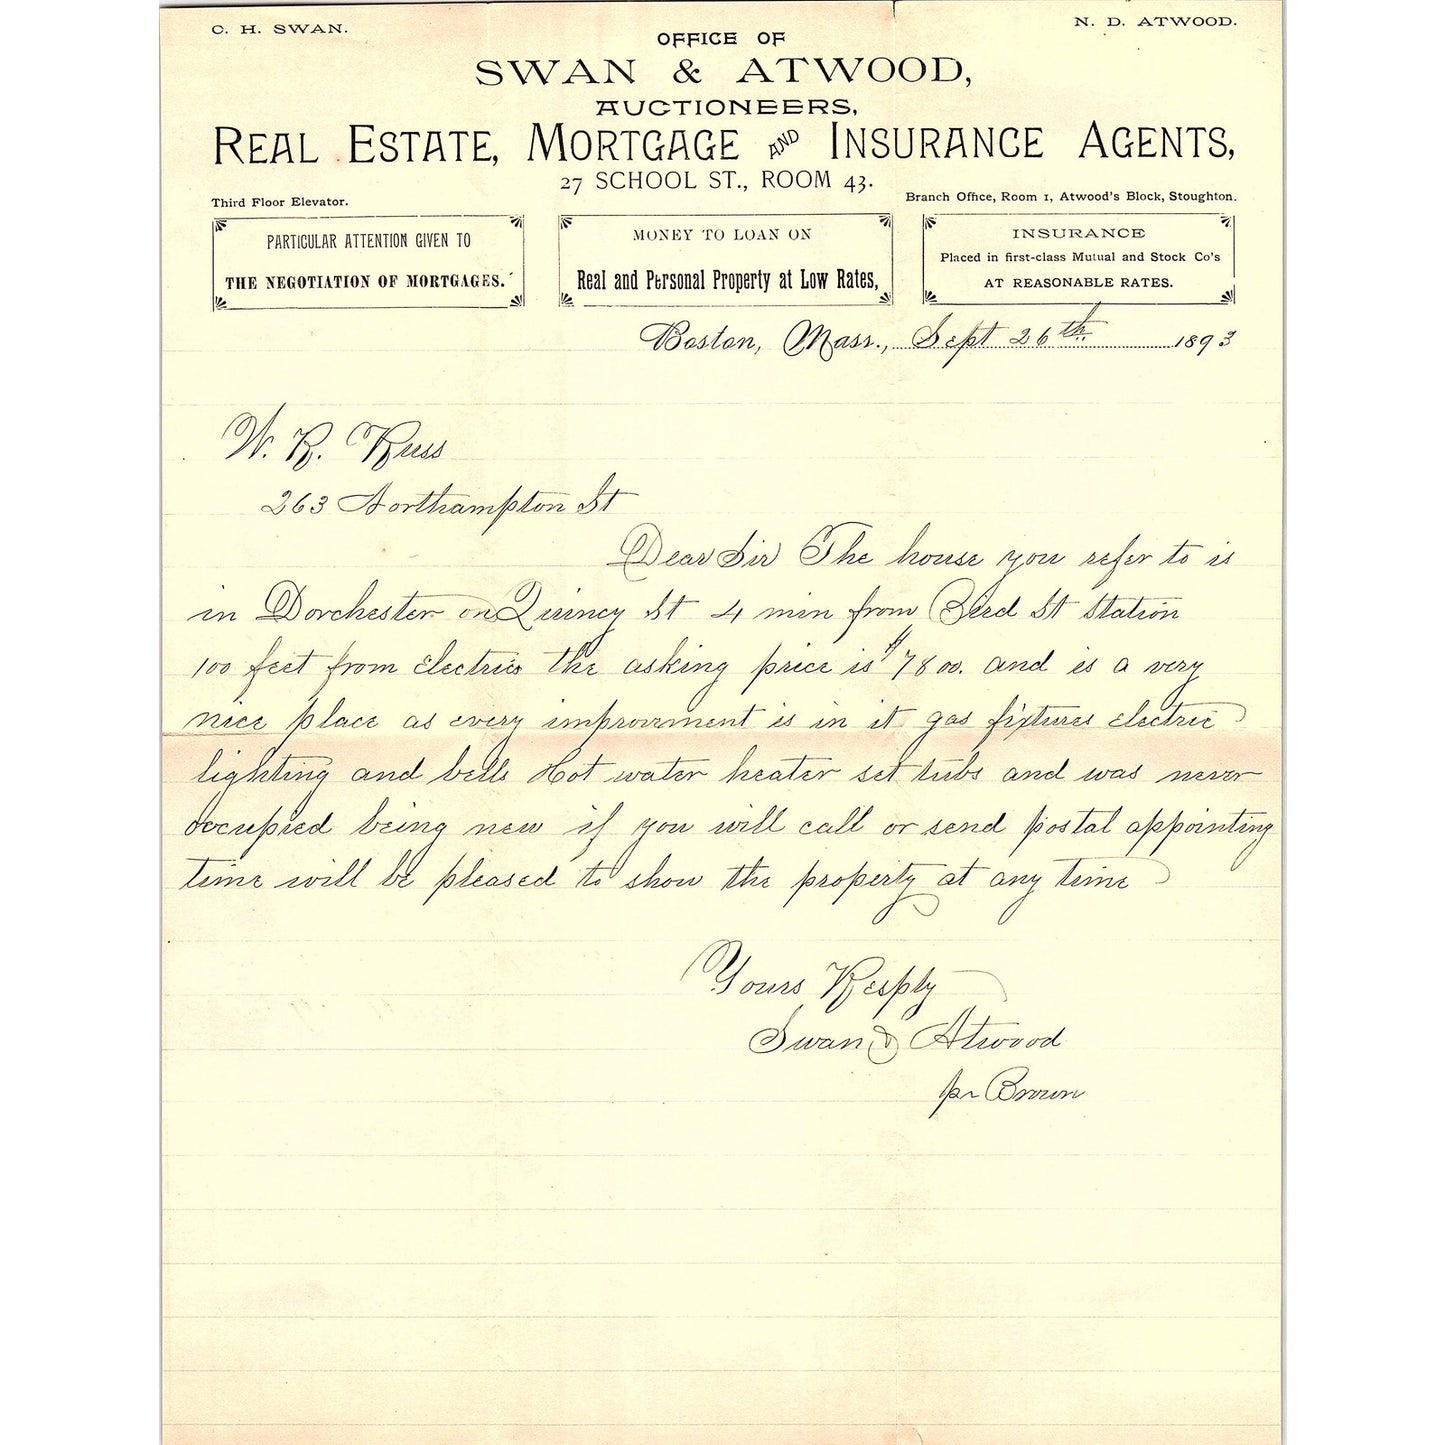 C. H. SWAN.
N. D. ATWOOD.
OFFICE OF
SWAN & ATWOOD,
AUCTIONEERS,
REAL ESTATE, MORTGAGE AND INSURANCE AGENTS,
27 SCHOOL ST., ROOM 43.
Third Floor Elevator.
Branch Office, Room 1, Atwood's Block, Stoughton.
PARTICULAR ATTENTION GIVEN TO
THE NEGOTIATION OF MORTGAGES.
MONEY TO LOAN ON
Real and Personal Property at Low Rates,
INSURANCE
Placed in first-class Mutual and Stock Co's
AT REASONABLE RATES.
Boston, Mass., Sept 26th. 1893
W. R. Russ
263 Northampton St
Dear Sir The house you refer to is
in Dorchester on Quincy St 4 min from Bird St Station
100 feet from Electrics the asking price is $7800. and is a very
nice place as every improvement is in it gas fixtures electric
lighting and bells Hot water heater set tubs and was never
occupied being new if you will call or send postal appointing
time will be pleased to show the property at any time
Yours Resply
Swan & Atwood
pr Brown